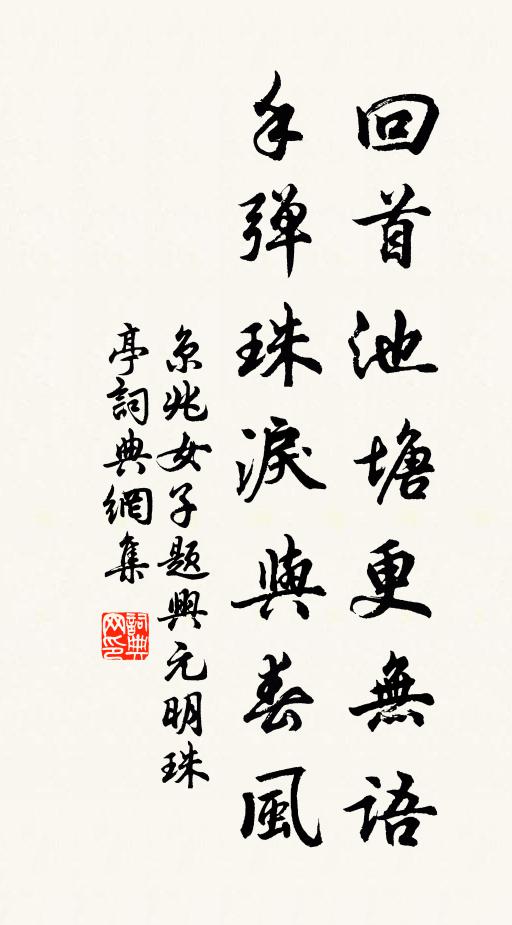 回首池塘更無語
手彈珠淚與春風
京兆女子題興元明珠
亭詞典網集
詞典
网印